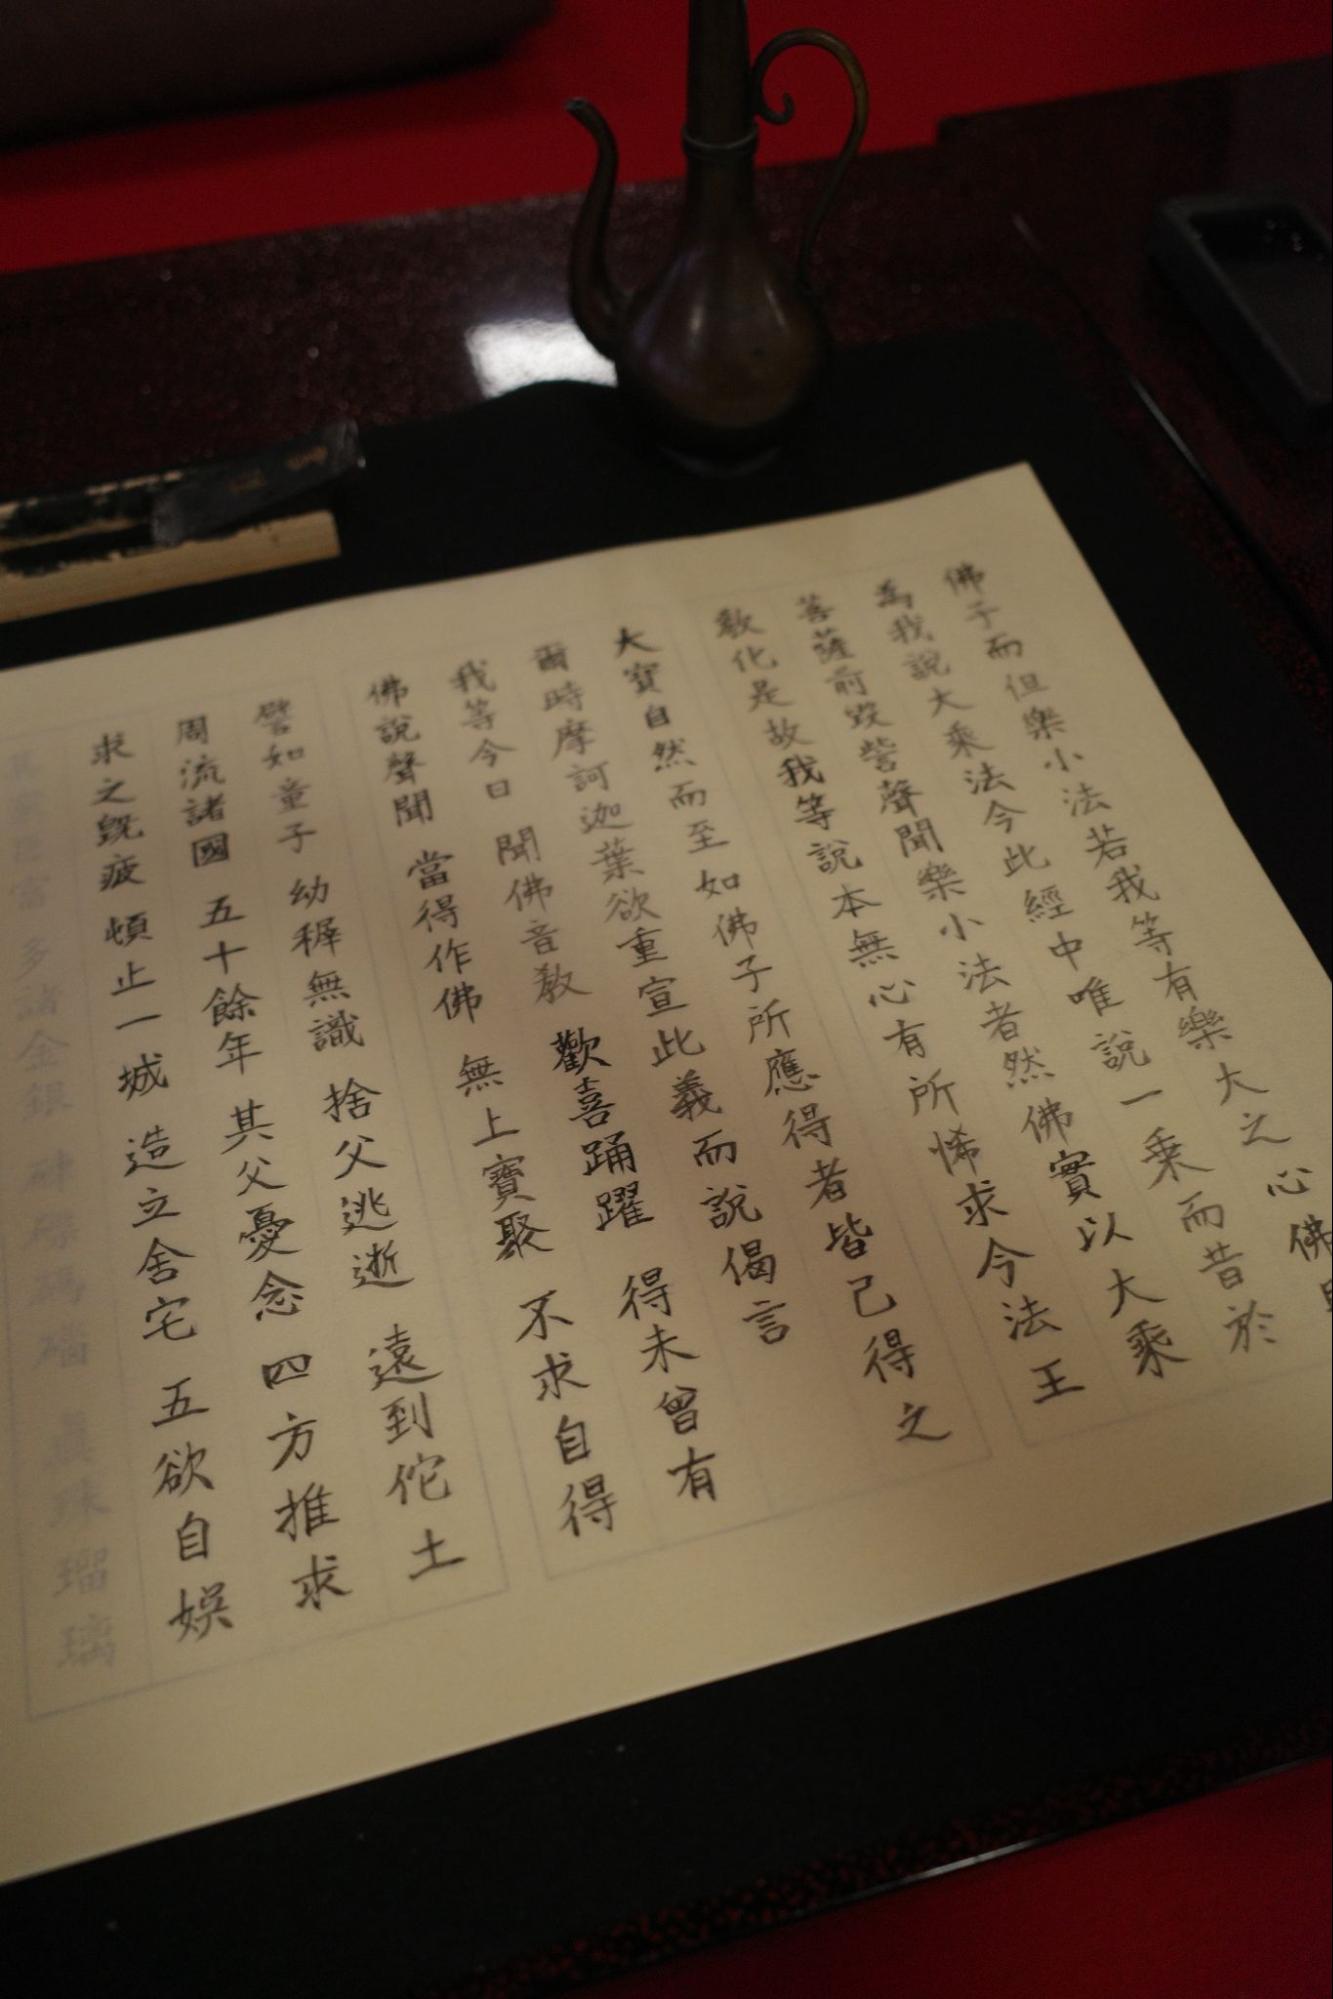 佛子而但樂小法若我等有樂大之心佛
為我說大乘法今此經中唯說一乘而昔於
菩薩前毀訾聲聞樂小法者然佛實以大乘
教化是故我等說本無心有所悕求今法王
大寶自然而至如佛子所應得者皆已得之
爾時摩訶迦葉欲重宣此義而說偈言
我等今日 聞佛音教 歡喜踊躍 得未曾有
佛說聲聞 當得作佛 無上寶聚 不求自得
譬如童子 幼稺無識 捨父逃逝 遠到佗土
周流諸國 五十餘年 其父憂念 四方推求
求之既疲 頓止一城 造立舍宅 五欲自娛
其家巨富 多諸金銀 硨磲碼碯 真珠瑠璃